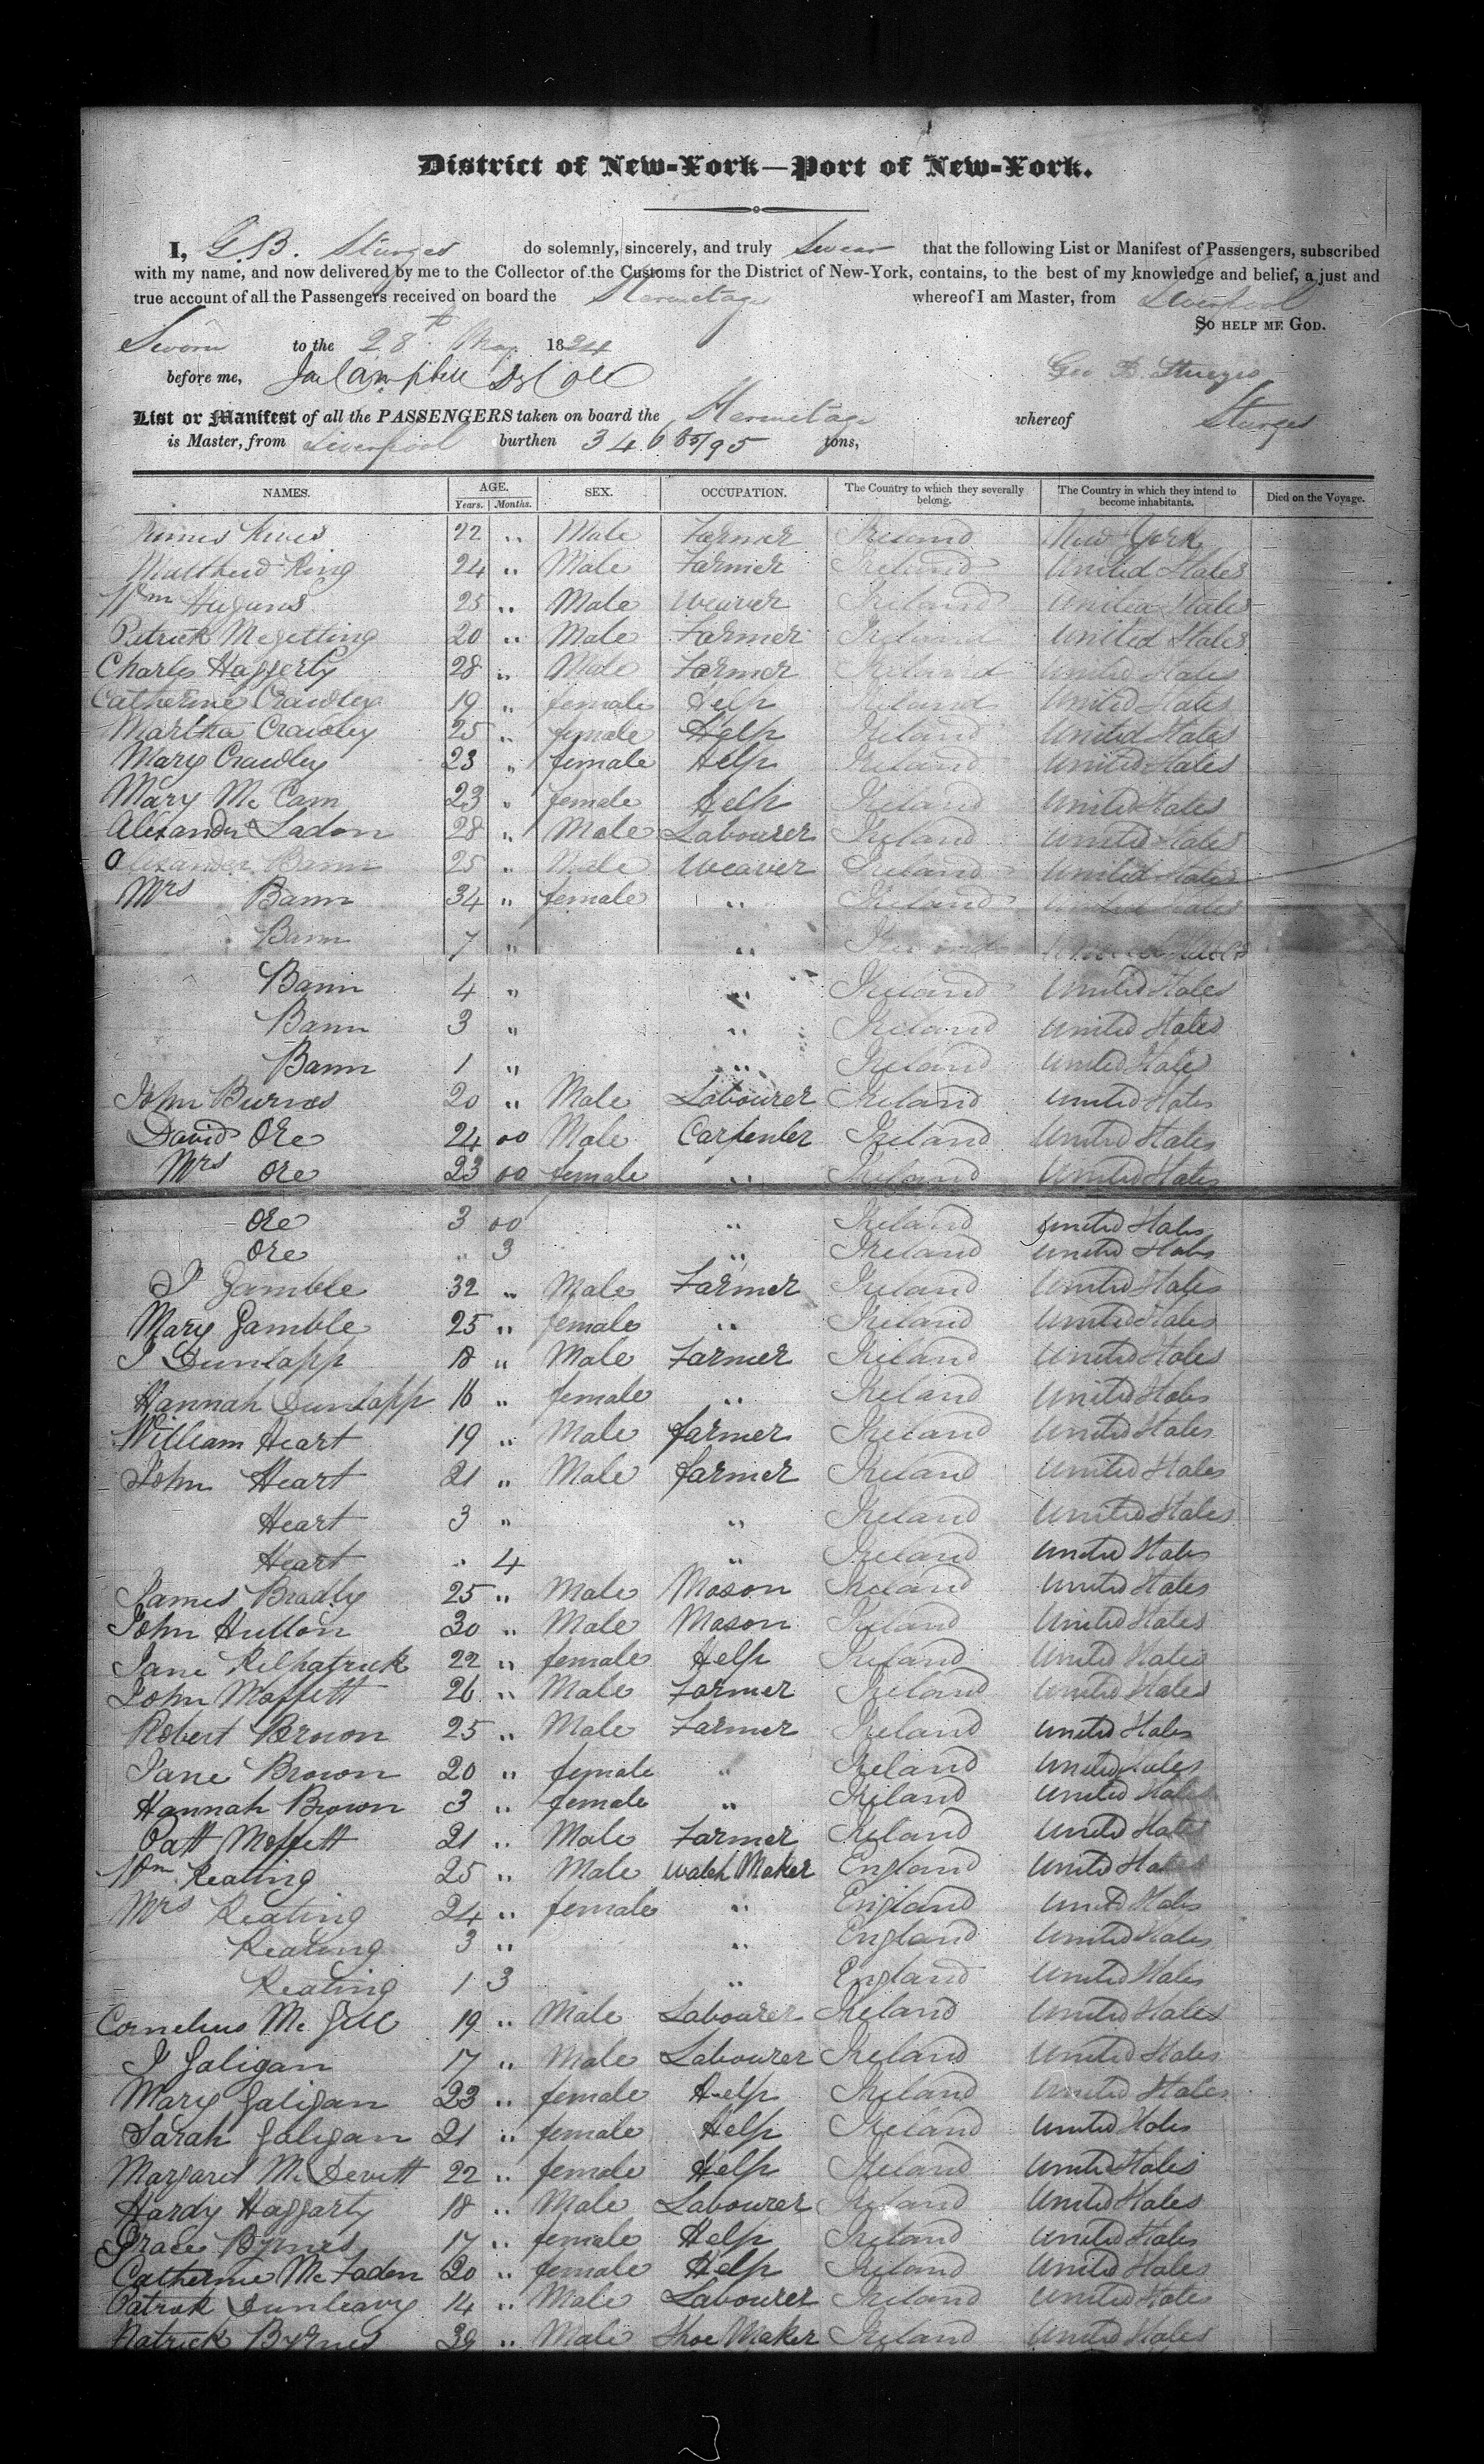 District of New-York—Port of New-York.
I, G.B. Sturges do solemnly, sincerely, and truly Swear that the following List or Manifest of Passengers, subscribed
with my name, and now delivered by me to the Collector of the Customs for the District of New-York, contains, to the best of my knowledge and belief, a just and
true account of all the Passengers received on board the Hermitage whereof I am Master, from Liverpool
So help me God.
Sworn to the 28th May 1834
before me, Geo B. Sturges
List or Manifest of all the PASSENGERS taken on board the Hermitage whereof Sturges
is Master, from Liverpool burthen 346 85/95 tons,
NAMES. AGE. SEX. OCCUPATION. The Country to which they severally belong. The Country in which they intend to become inhabitants. Died on the Voyage.
Years. Months.
22 " Male Farmer Ireland New York
Matthew King 24 " Male Farmer Ireland United States
Wm 25 " Male Weaver Ireland United States
Patrick Megetting 20 " Male Farmer Ireland United States
Charles Hafferty 28 " Male Farmer Ireland United States
Catherine Crawley 19 " female Help Ireland United States
Martha Crawley 25 " female Help Ireland United States
Mary Crawley 23 " female Help Ireland United States
Mary Mc Cam 23 " female Help Ireland United States
Alexander Ladon 28 " Male Labourer Ireland United States
Alexander Bann 25 " Male Weaver Ireland United States
Mrs Bann 34 " female " Ireland United States
Bann 7 " " Ireland United States
Bann 4 " " Ireland United States
Bann 3 " " Ireland United States
Bann 1 " " Ireland United States
John Burnes 20 " Male Labourer Ireland United States
David Ore 24 00 Male Carpenter Ireland United States
Mrs Ore 23 00 female " Ireland United States
Ore 3 00 " Ireland United States
Ore " 3 " Ireland United States
J Gamble 32 " Male Farmer Ireland United States
Mary Gamble 25 " female " Ireland United States
J Dunlapp 18 " Male Farmer Ireland United States
Hannah Dunlapp 16 " female " Ireland United States
William Heart 19 " Male farmer Ireland United States
John Heart 21 " Male farmer Ireland United States
Heart 3 " " Ireland United States
Heart " 4 " Ireland United States
James Bradly 25 " Male Mason Ireland United States
John Hutton 30 " Male Mason Ireland United States
Jane Kilpatrick 22 " female Help Ireland United States
John Moffett 26 " Male Farmer Ireland United States
Robert Brown 25 " Male Farmer Ireland United States
Jane Brown 20 " female " Ireland United States
Hannah Brown 3 " female " Ireland United States
Patt Moffett 21 " Male Farmer Ireland United States
Wm Keating 25 " Male Watch Maker England United States
Mrs Keating 24 " female " England United States
Keating 3 " " England United States
Keating 1 3 " England United States
Cornelius Mc Gill 19 " Male Labourer Ireland United States
J Galigan 17 " Male Labourer Ireland United States
Mary Galigan 23 " female Help Ireland United States
Sarah Galigan 21 " female Help Ireland United States
Margaret Mc Devitt 22 " female Help Ireland United States
Hardy Haggarty 18 " Male Labourer Ireland United States
Grace Byrnes 17 " female Help Ireland United States
Catherine McFaden 20 " female Help Ireland United States
Patrick Dunleavy 14 " Male Labourer Ireland United States
Patrick Byrnes 29 " Male Shoe Maker Ireland United States